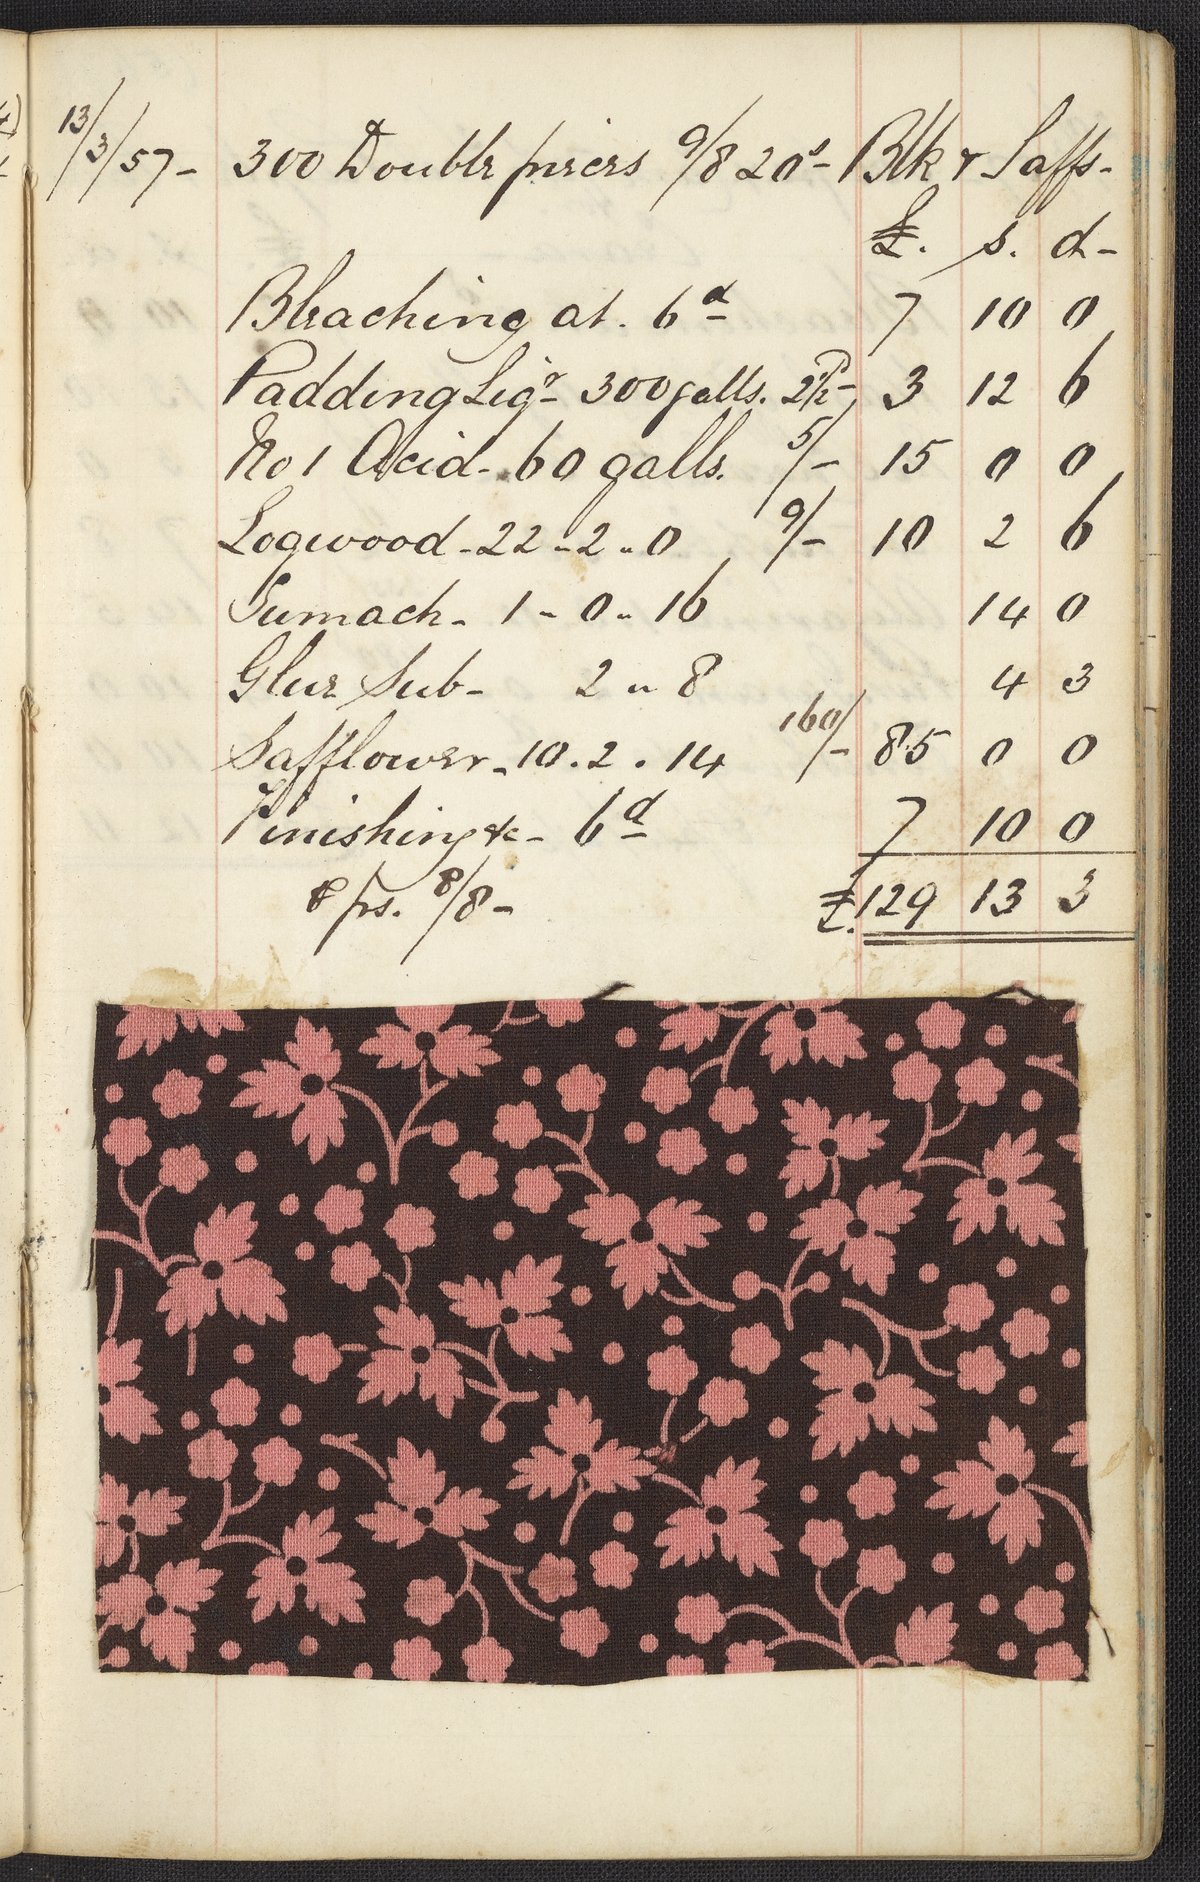 13/3/57- 300 Double pieces 9/8 20s- Blk & Saffs-
£. s. d-
Bleaching at. 6d 7 10 0
Padding Liqr 300 galls. 2½- 3 12 6
No 1 Acid- 60 galls. 5/- 15 0 0
Logwood-22-2-0 9/- 10 2 6
Sumach- 1-0-16 14 0
Glue Sub- 2 " 8 4 3
Safflower-10.2.14 160/- 85 0 0
Finishing &c- 6d 7 10 0
℘ ps. 8/8- £.129 13 3